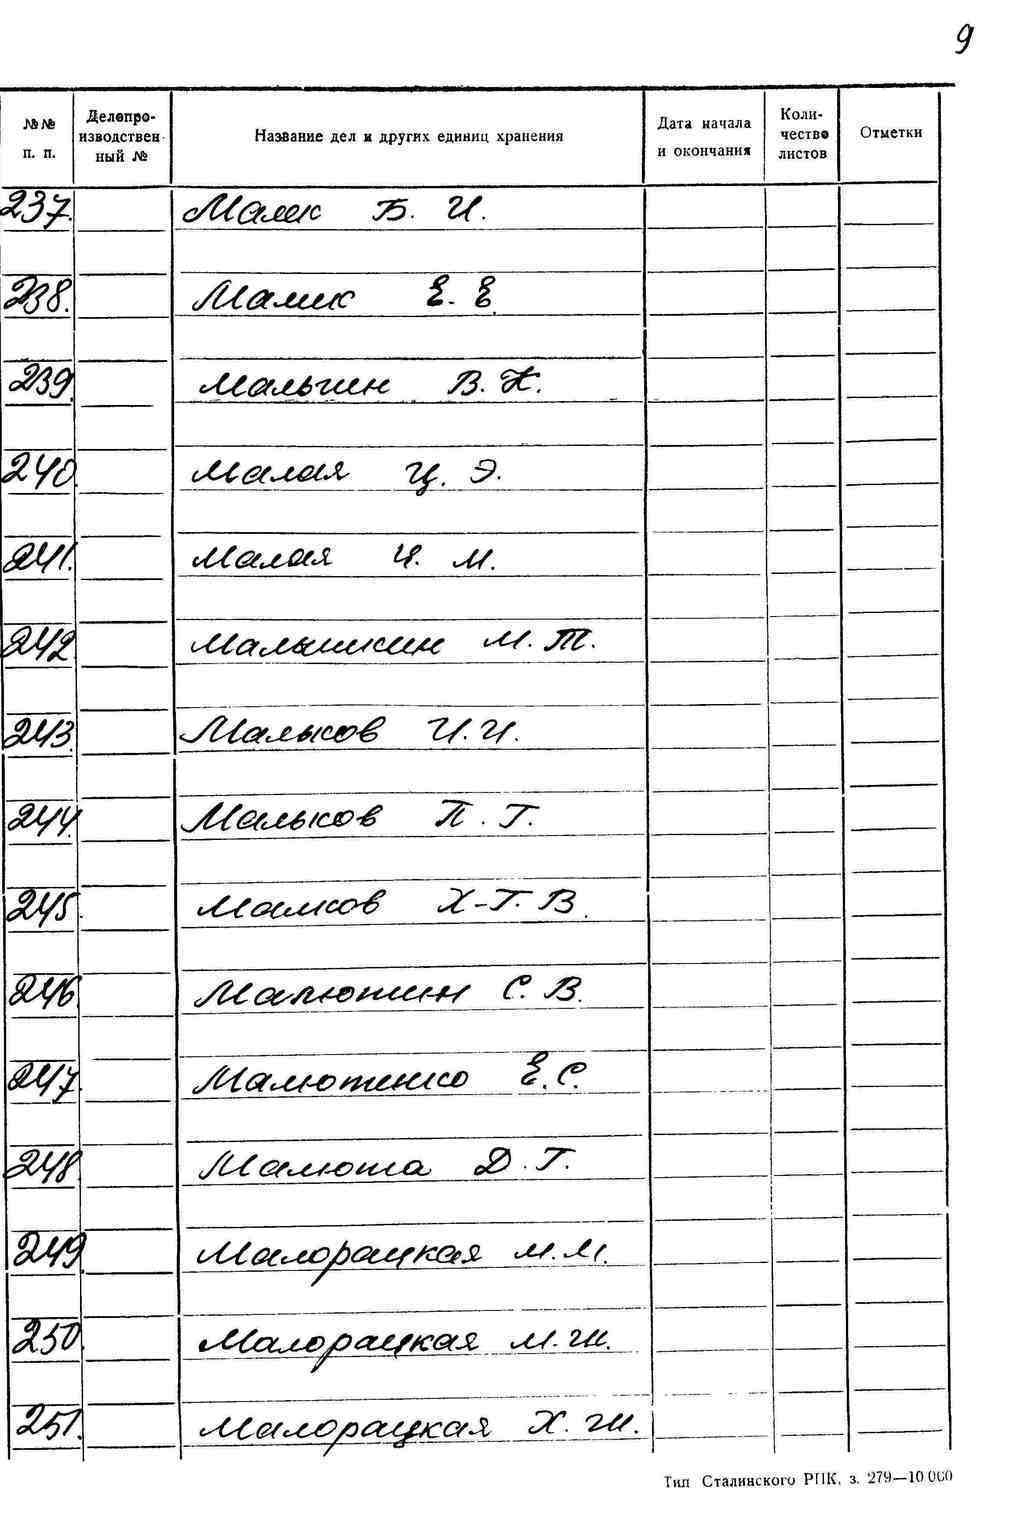 9
№№ п. п.
Делопроизводственный №
Название дел и других единиц хранения
Дата начала и окончания
Количество листов
Отметки
237. Малис Б. И.
238. Малик Е. Е.
239. Мальгин В. К.
240. Малая Ц. Э.
241. Малая И. М.
242. Малышкин М. Т.
243. Мальков И. И.
244. Мальков П. Г.
245. Малков Х-Г. В.
246. Малютин С. В.
247. Малютенко Е. С.
248. Малюта Д. Г.
249. Малорацкая М. М.
250. Малорацкая М. Ш.
251. Малорацкая Х. Ш.
Тип Сталинского РПК, з. 279—10 000